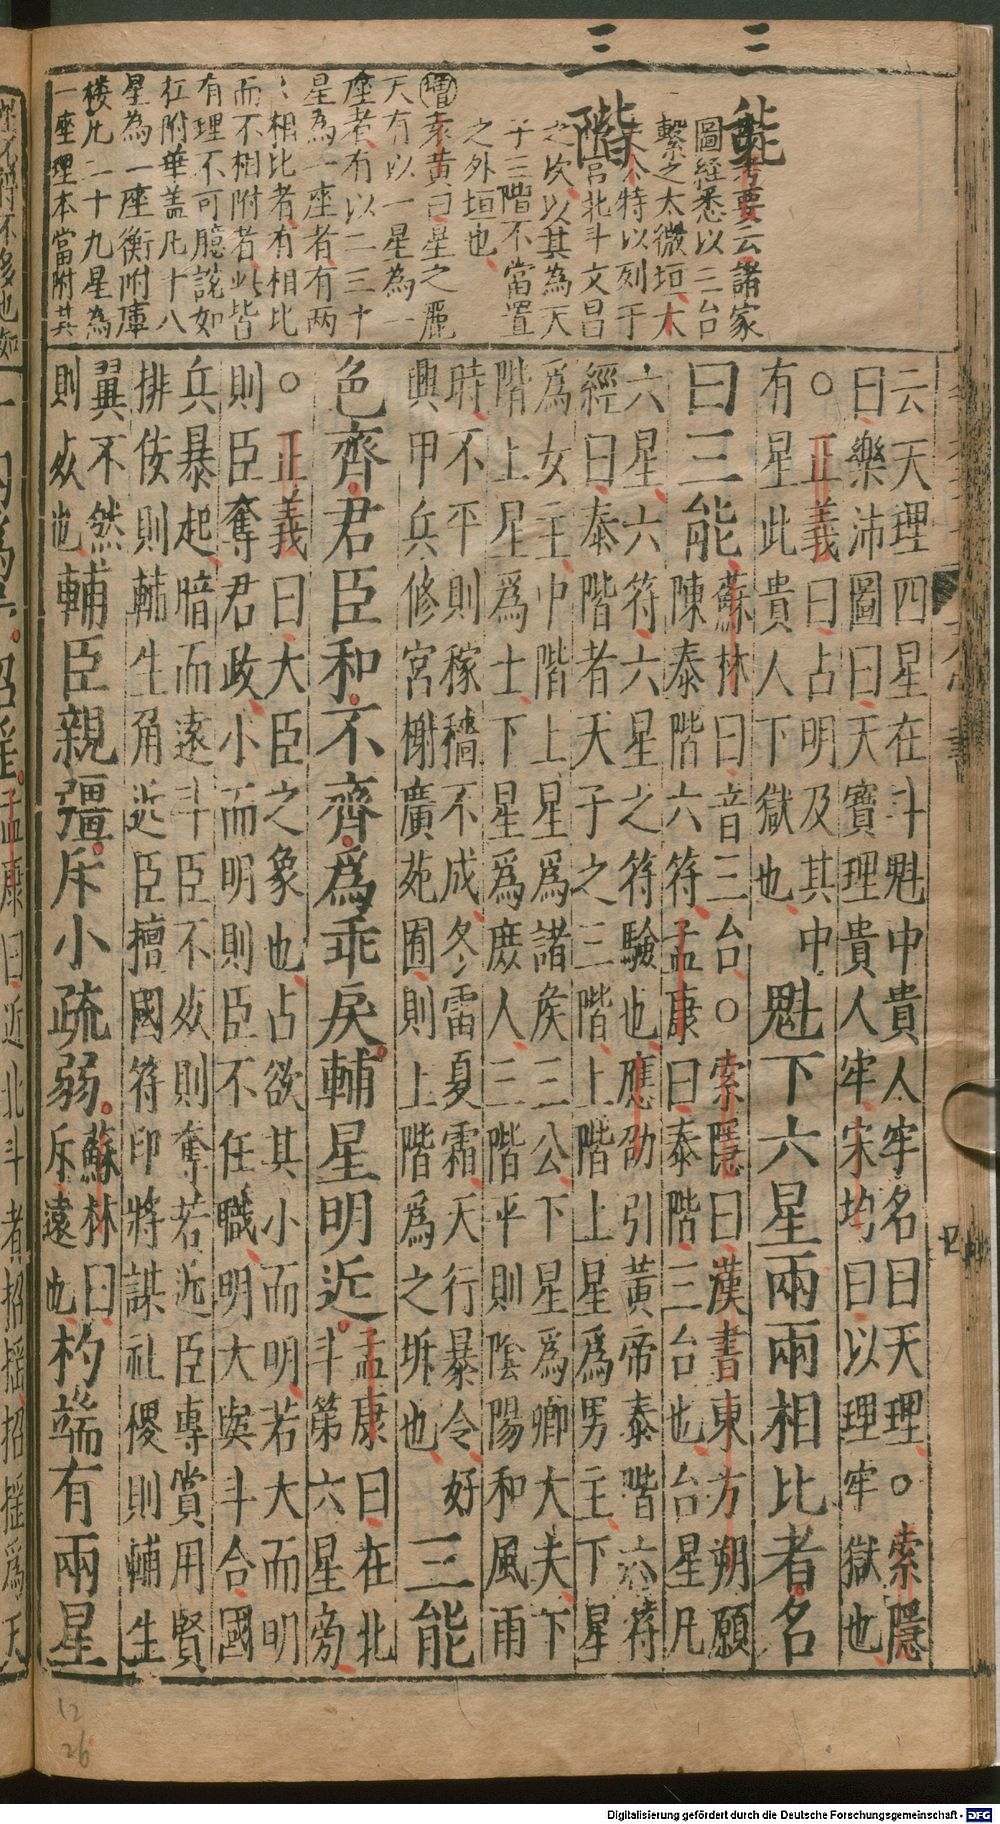 三能
三階
考要云諸家
圖經悉以三台
繫之太微垣太
公特以列于
中宮北斗文昌
之次以其為天
子三階不當置
之外垣也
增袁黃曰星之麗
天有以一星為一
座者有以二三十
星為一座者有兩
兩相比者有相比
而不相附者此皆
有理不可臆說如
杠附華盖凡十八
星為一座衡附庫
樓凡二十九星為
一座理本當附其
云天理四星在斗魁中貴人牢名曰天理○索隱
曰樂沛圖曰天寶理貴人牢宋均曰以理牢獄也
○正義曰占明及其中
有星此貴人下獄也
魁下六星兩兩相比者名
曰三能
蘇林曰音三台○索隱曰漢書東方朔願
陳泰階六符孟康曰泰階三台也台星凡
六星六符六星之符驗也應劭引黃帝泰階六符
經曰泰階者天子之三階上階上星爲男主下星
爲女主中階上星爲諸侯三公下星爲卿大夫下
階上星爲士下星爲庶人三階平則陰陽和風雨
時不平則稼穡不成冬雷夏霜天行暴令好
興甲兵修宮榭廣苑囿則上階爲之坼也
三能
色齊君臣和不齊爲乖戾輔星明近
孟康曰在北
斗第六星旁
○正義曰大臣之象也占欲其小而明若大而明
則臣奪君政小而明則臣不任職明大與斗合國
兵暴起暗而遠斗臣不死則奪若近臣專賞用賢
排佞則輔生角近臣擅國符印將謀社稷則輔生
翼不然
則死也
輔臣親彊斥小疏弱
蘇林曰
斥遠也
杓端有兩星
招搖
孟康曰近北斗者招搖招搖爲天
12
26
Digitalisierung gefördert durch die Deutsche Forschungsgemeinschaft - DFG